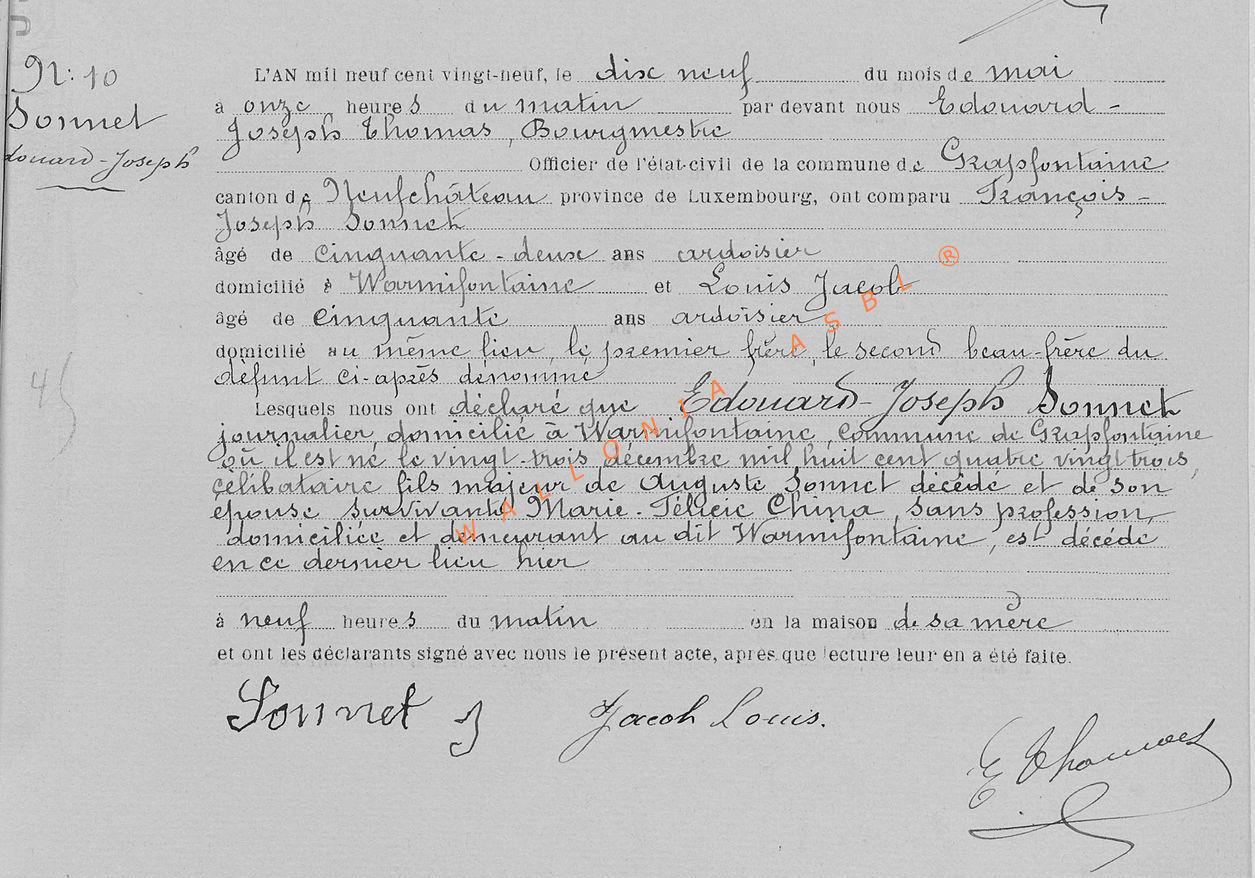 N: 10
Sonnet
douard-Joseph
45
L'AN mil neuf cent vingt-neuf, le dix neuf du mois de mai
à onze heures du matin par devant nous Edouard-
Joseph Thomas, Bourgmestre
Officier de l'état-civil de la commune de Grapfontaine
canton de Neufchâteau province de Luxembourg, ont comparu François-
Joseph Sonnet
âgé de cinquante-deux ans ardoisier
domicilié à Warmifontaine et Louis Jacob
âgé de cinquante ans ardoisier
domicilié au même lieu, le premier frère, le second beau-frère du
défunt ci-après dénommé
Lesquels nous ont déclaré que Edouard-Joseph Sonnet
journalier, domicilié à Warmifontaine, commune de Grapfontaine
où il est né le vingt-trois décembre mil huit cent quatre vingt trois,
célibataire fils majeur de Auguste Sonnet décédé et de son
épouse survivante Marie-Félicie China, sans profession,
domiciliée et demeurant au dit Warmifontaine, est décédé
en ce dernier lieu hier
à neuf heures du matin en la maison de sa mère
et ont les déclarants signé avec nous le présent acte, après que lecture leur en a été faite.
Sonnet J Jacob Louis.
E Thomas
WALLONIA ASBL ®